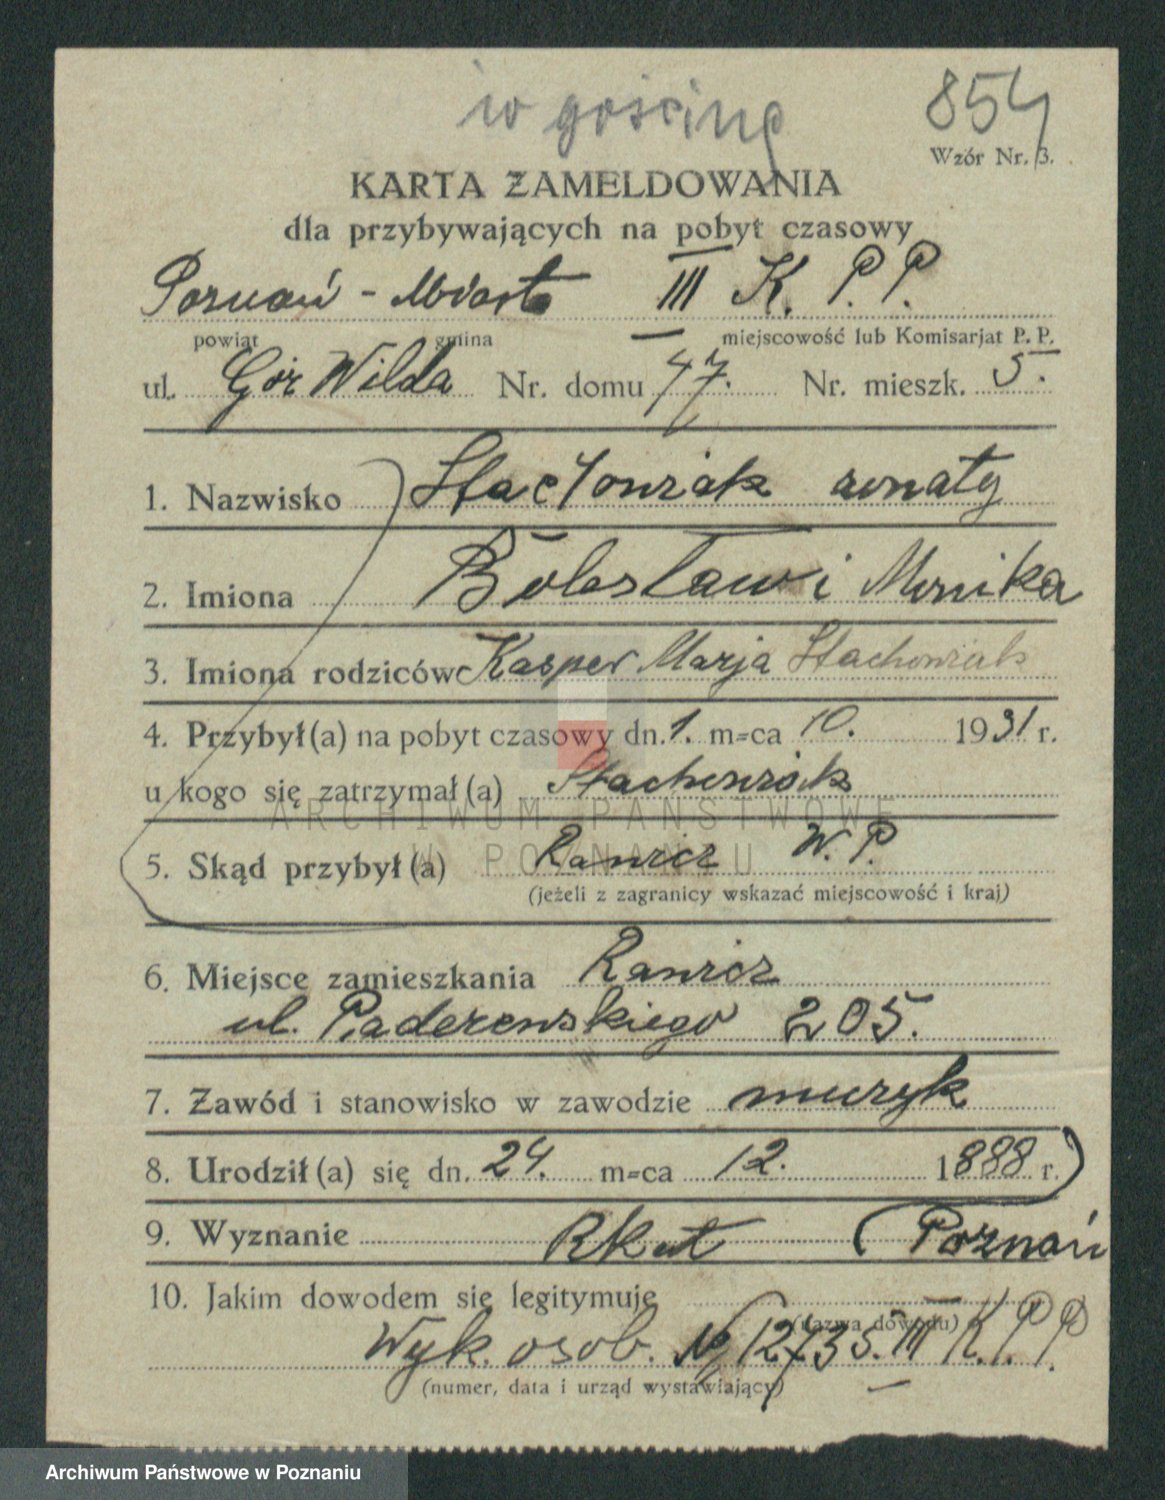 w gościnę
854
Wzór Nr. 3.
KARTA ZAMELDOWANIA
dla przybywających na pobyt czasowy
Poznań - Miasto III K. P. P.
powiat gmina miejscowość lub Komisarjat P. P.
ul. Gór Wilda Nr. domu 47. Nr. mieszk. 5.
1. Nazwisko Stachowiak
2. Imiona Bolesław i Monika
3. Imiona rodziców Kasper Marja Stachowiak
4. Przybył(a) na pobyt czasowy dn. 1. m-ca 10. 1931 r.
u kogo się zatrzymał(a) Stachowiak
ARCHIWUM PAŃSTWOWE
W POZNANIU
5. Skąd przybył(a) Rawicz W. P.
(jeżeli z zagranicy wskazać miejscowość i kraj)
6. Miejsce zamieszkania Rawicz
ul. Paderewskiego 205.
7. Zawód i stanowisko w zawodzie muzyk
8. Urodził(a) się dn. 24. m-ca 12. 1888 r.
9. Wyznanie Rkat (Poznań
10. Jakim dowodem się legitymuje
(nazwa dowodu)
Wyk. osob. No 12735. III K. P. P.
(numer, data i urząd wystawiający)
Archiwum Państwowe w Poznaniu